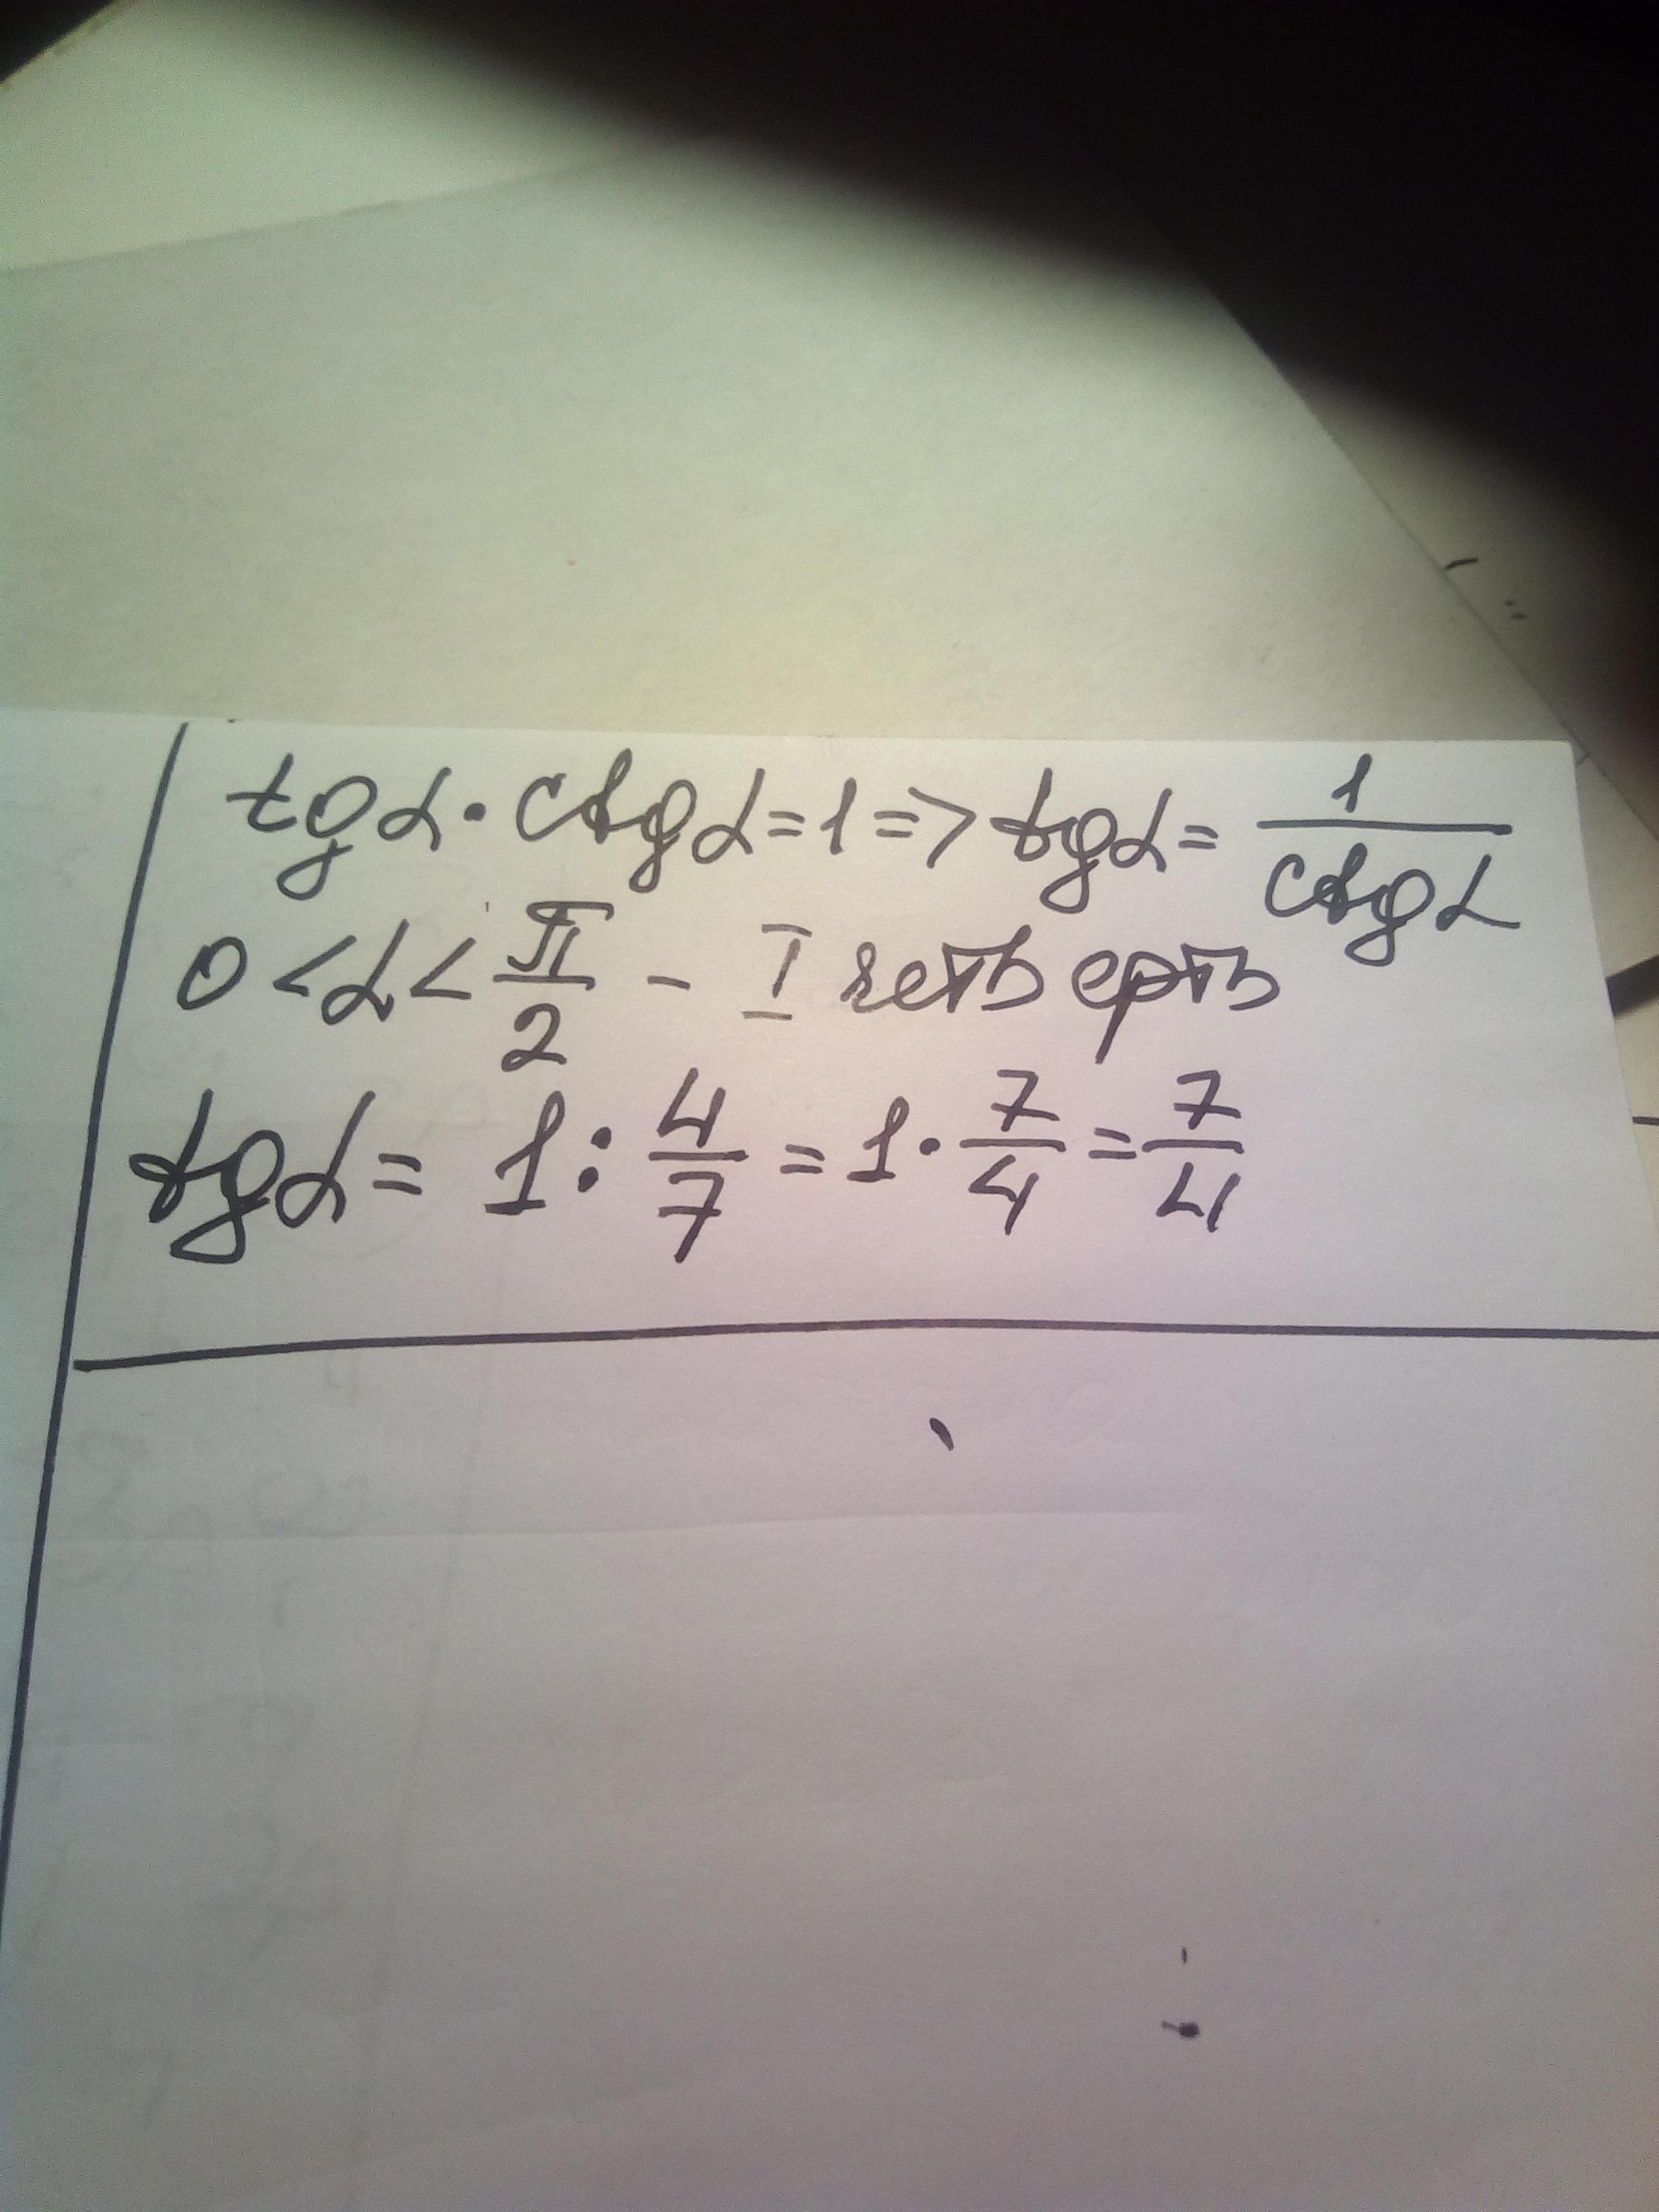 tgα · ctgα = 1 => tgα = 1/ctgα
0 < α < π/2 - I четверть
tgα = 1 : 4/7 = 1 · 7/4 = 7/4